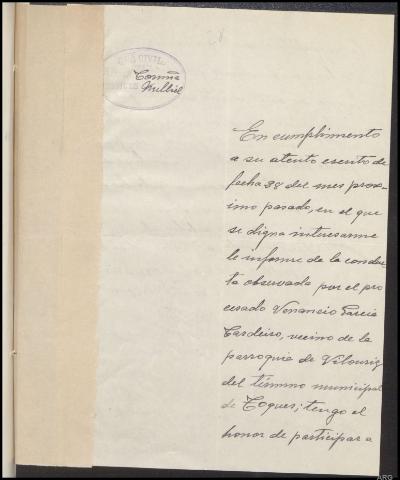 Comña
Mellid
En cumplimiento
a su atento escrito de
fecha 28 del mes proxi-
imo pasado, en el que
se digna interesarme
le informe de la conduc-
ta observada por el pro
cesado Venancio Garcia
Cardeiro, vecino de la
parroquia de Vilouriz
del término municipal
de Toques; tengo el
honor de participar a
ARG